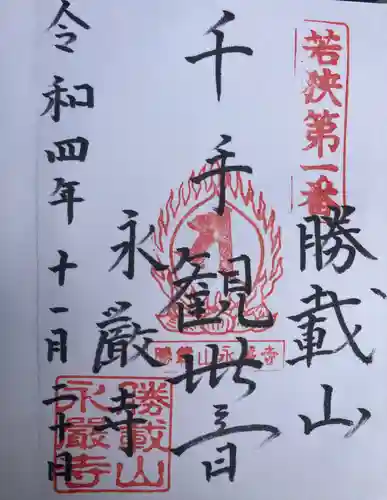 若狭第一番
勝載山
千手観世音
勝載山永厳寺
永厳寺
勝載山
永厳寺
令和四年十一月二十日